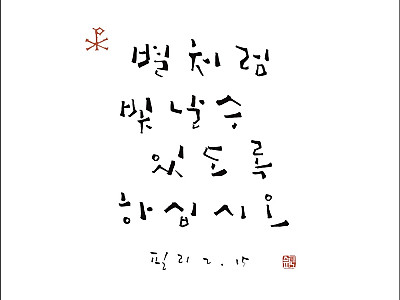 별처럼
빛날수
있도록
하십시오
필리 2.15